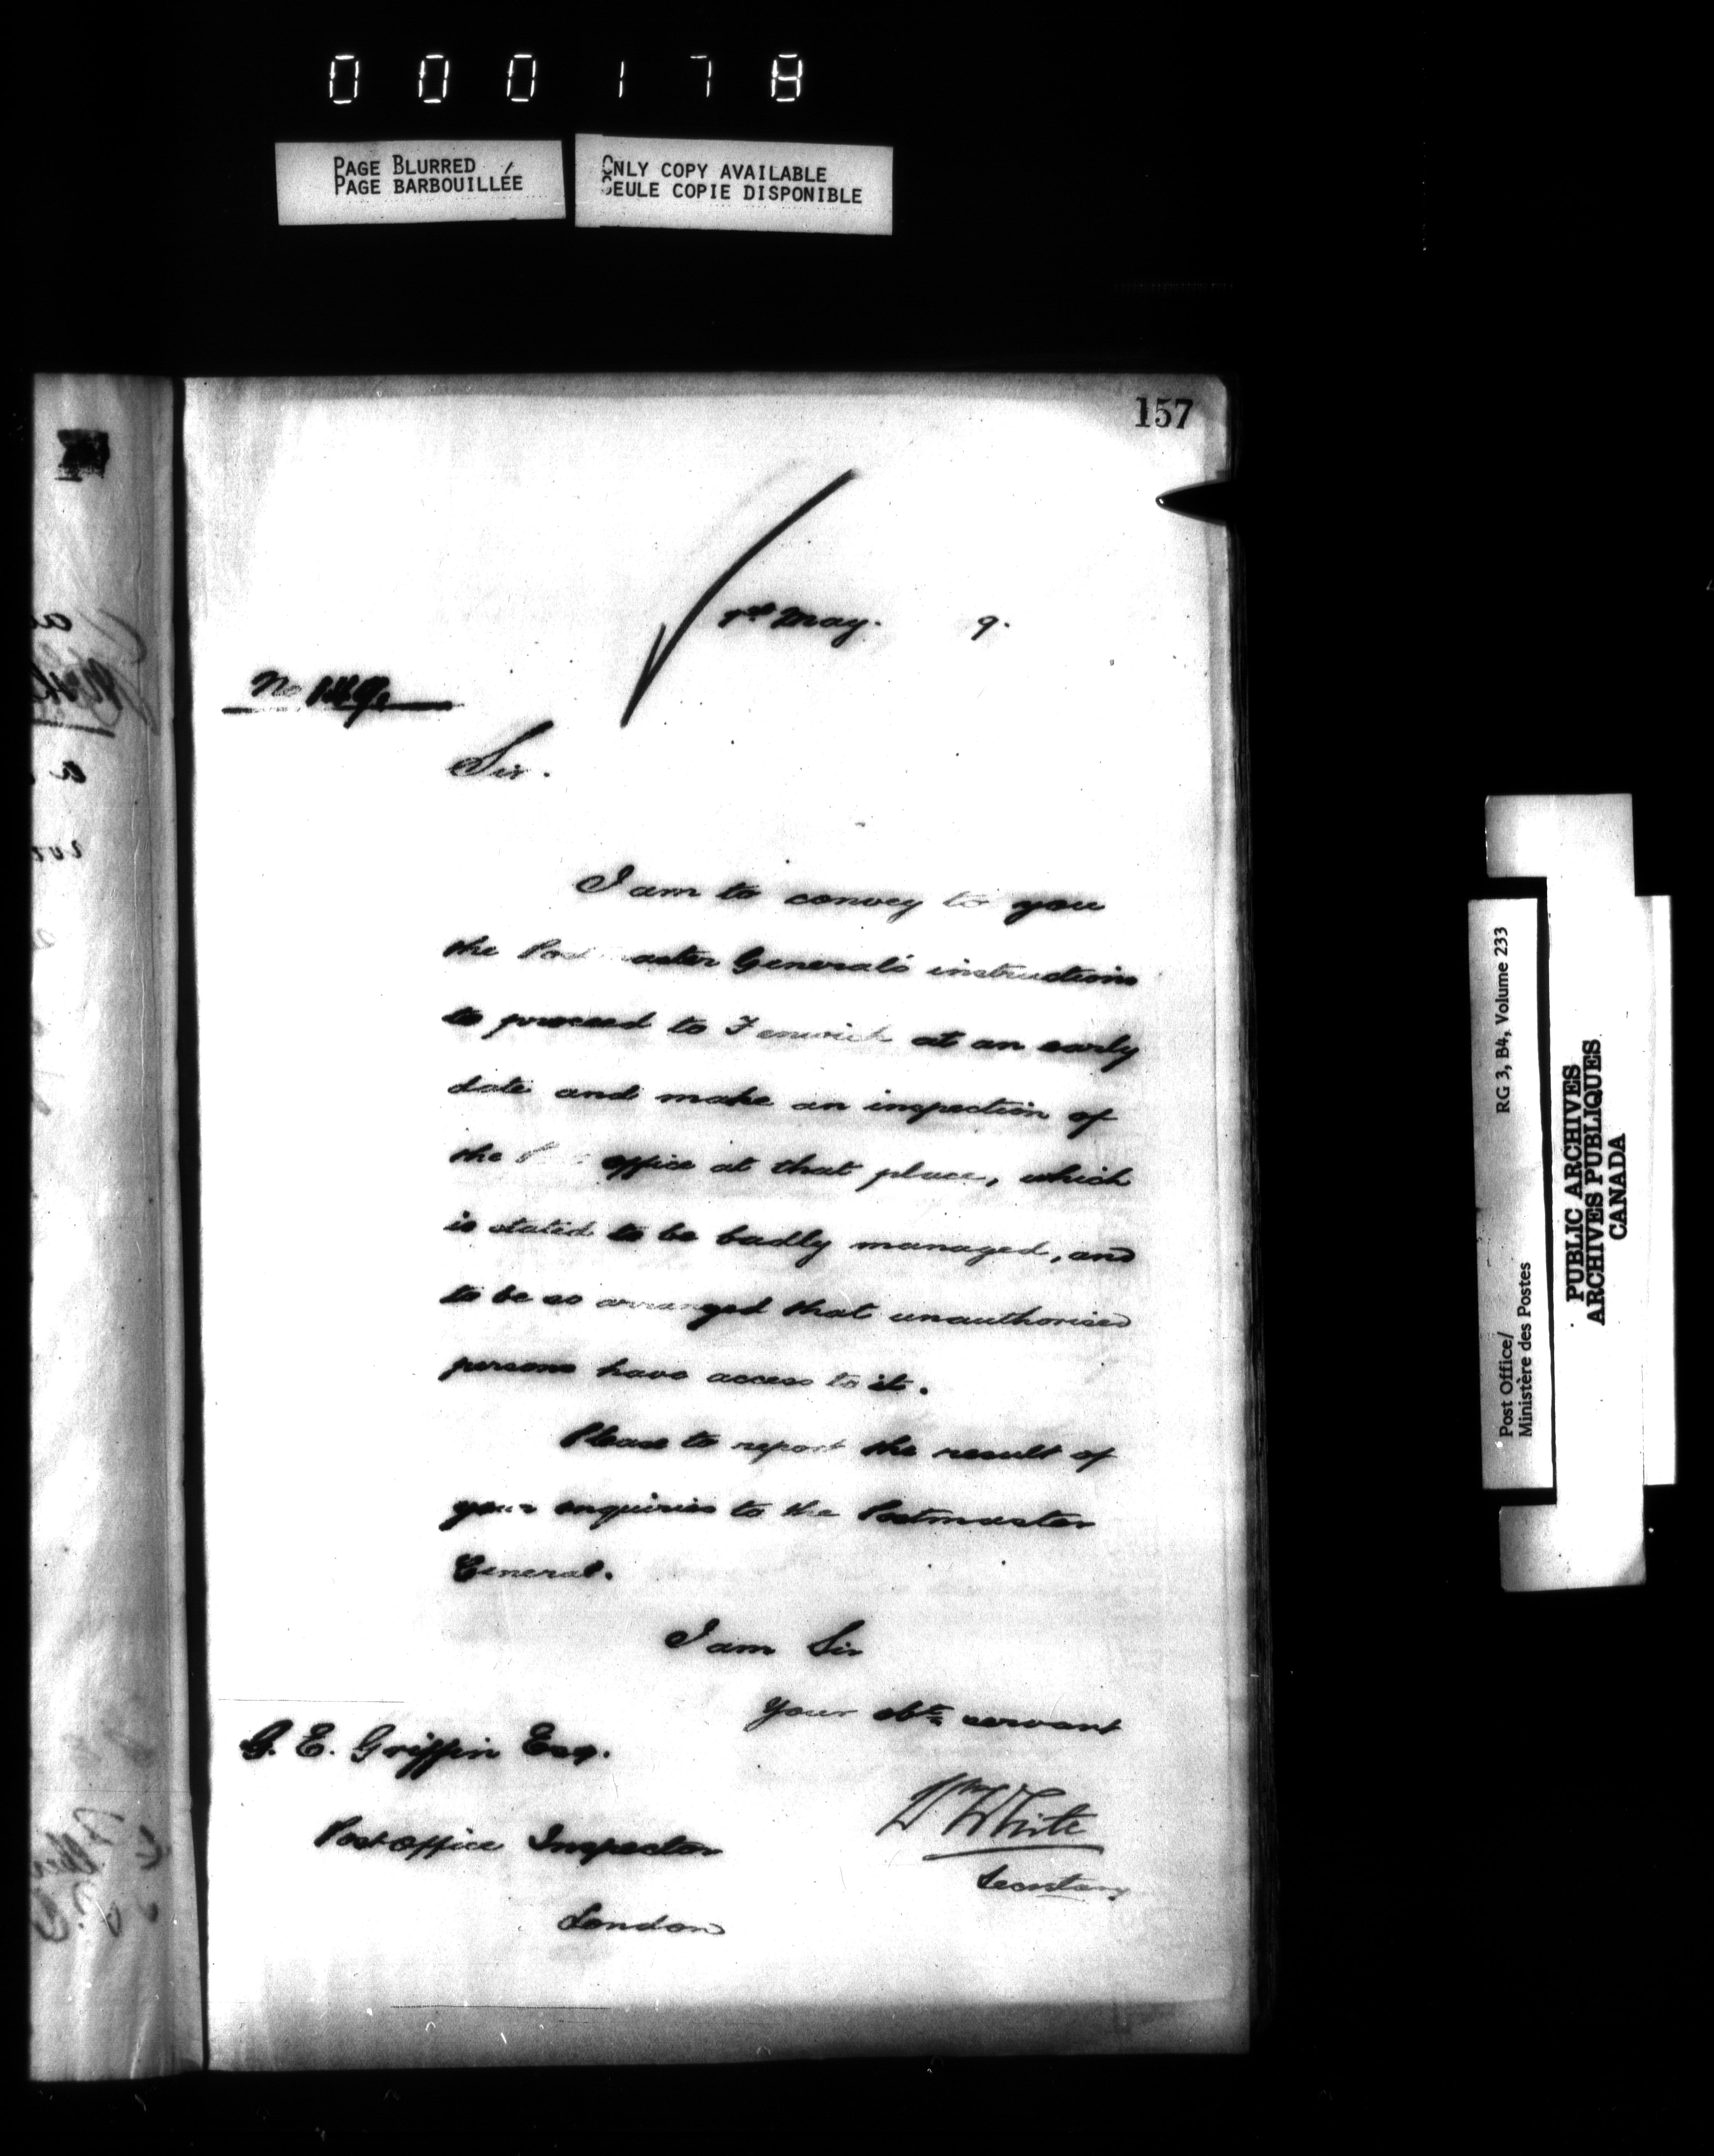 000178
PAGE BLURRED
PAGE BARBOUILLÉE
ONLY COPY AVAILABLE
SEULE COPIE DISPONIBLE
157
May. 9.
No
Sir.
I am to convey to you
the Post aster General's instructions
to proceed to Fenwick at an early
date and make an inspection of
the P office at that place, which
is stated to be badly managed, and
to be so arranged that unauthorised
persons have access to it.
Please to report the result of
your enquiries to the Postmaster
General.
I am Sir
Your obt. servant
Wm White
Secretary
G. E. Griffin Esq.
Post Office Inspector
London
Post Office/
Ministère des Postes
RG 3, B4, Volume 233
PUBLIC ARCHIVES
ARCHIVES PUBLIQUES
CANADA